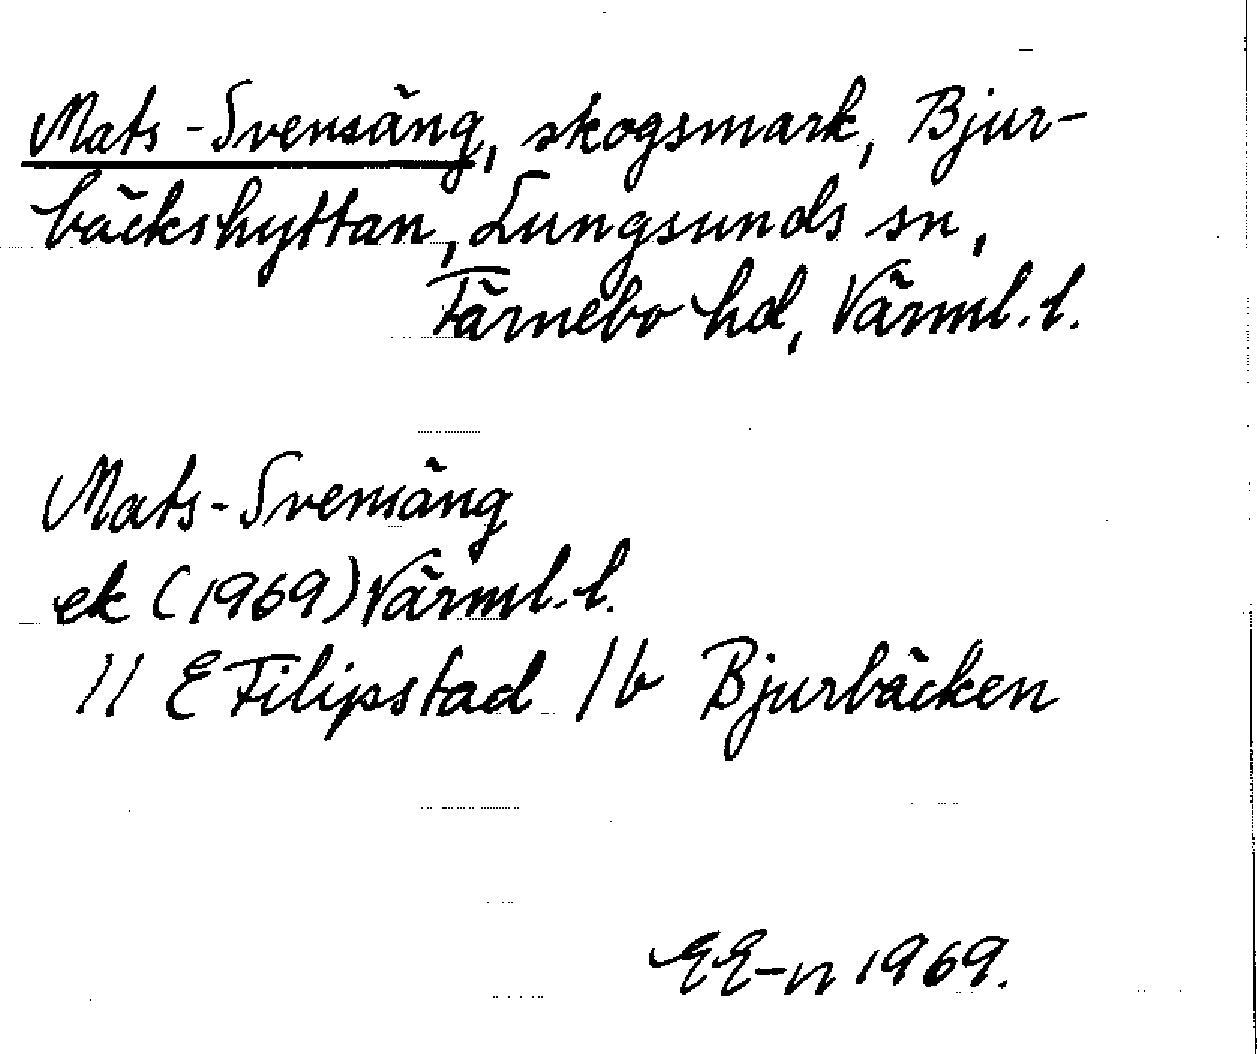 Mats-Svensäng, skogsmark, Bjur-
bäckshyttan, Lungsunds sn,
Färnebo hd, Värml. l.
Mats-Svensäng
ek (1969) Värml. l.
11 E Filipstad 1b Bjurbäcken
EE-n 1969.